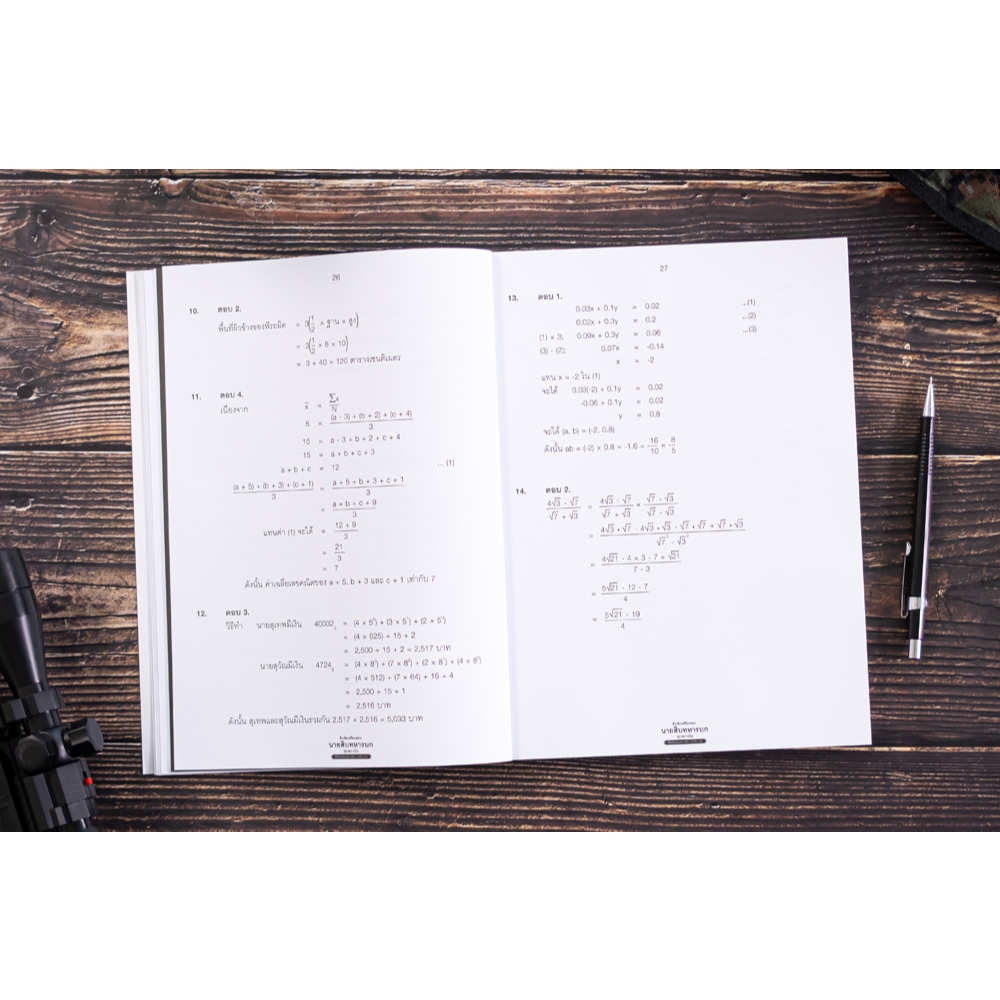 26
10. ตอบ 2.
พื้นที่ผิวข้างของพีระมิด = 3(1/2 × ฐาน × สูง)
= 3(1/2 × 8 × 10)
= 3 × 40 = 120 ตารางเซนติเมตร
11. ตอบ 4.
เนื่องจาก x̄ = Σx/N
5 = (a - 3) + (b + 2) + (c + 4)/3
15 = a - 3 + b + 2 + c + 4
15 = a + b + c + 3
a + b + c = 12 ... (1)
(a + 5) + (b + 3) + (c + 1)/3 = a + 5 + b + 3 + c + 1/3
= a + b + c + 9/3
แทนค่า (1) จะได้ = 12 + 9/3
= 21/3
= 7
ดังนั้น ค่าเฉลี่ยเลขคณิตของ a + 5, b + 3 และ c + 1 เท่ากับ 7
12. ตอบ 3.
วิธีทำ นายสุเทพมีเงิน 40032₅ = (4 × 5⁴) + (3 × 5¹) + (2 × 5⁰)
= (4 × 625) + 15 + 2
= 2,500 + 15 + 2 = 2,517 บาท
นายสุวัณมีเงิน 4724₈ = (4 × 8³) + (7 × 8²) + (2 × 8¹) + (4 × 8⁰)
= (4 × 512) + (7 × 64) + 16 + 4
= 2,500 + 15 + 1
= 2,516 บาท
ดังนั้น สุเทพและสุวัณมีเงินรวมกัน 2,517 + 2,516 = 5,033 บาท
นายสิบทหารบก
27
13. ตอบ 1.
0.03x + 0.1y = 0.02 ...(1)
0.02x + 0.3y = 0.2 ...(2)
(1) × 3; 0.09x + 0.3y = 0.06 ...(3)
(3) - (2); 0.07x = -0.14
x = -2
แทน x = -2 ใน (1)
จะได้ 0.03(-2) + 0.1y = 0.02
-0.06 + 0.1y = 0.02
y = 0.8
จะได้ (a, b) = (-2, 0.8)
ดังนั้น ab = (-2) × 0.8 = -1.6 = -16/10 = -8/5
14. ตอบ 2.
4√3 - √7/√7 + √3 = 4√3 - √7/√7 + √3 × √7 - √3/√7 - √3
= 4√3 • √7 - 4√3 • √3 - √7 • √7 + √7 • √3/√7² - √3²
= 4√21 - 4 × 3 - 7 + √21/7 - 3
= 5√21 - 12 - 7/4
= 5√21 - 19/4
นายสิบทหารบก